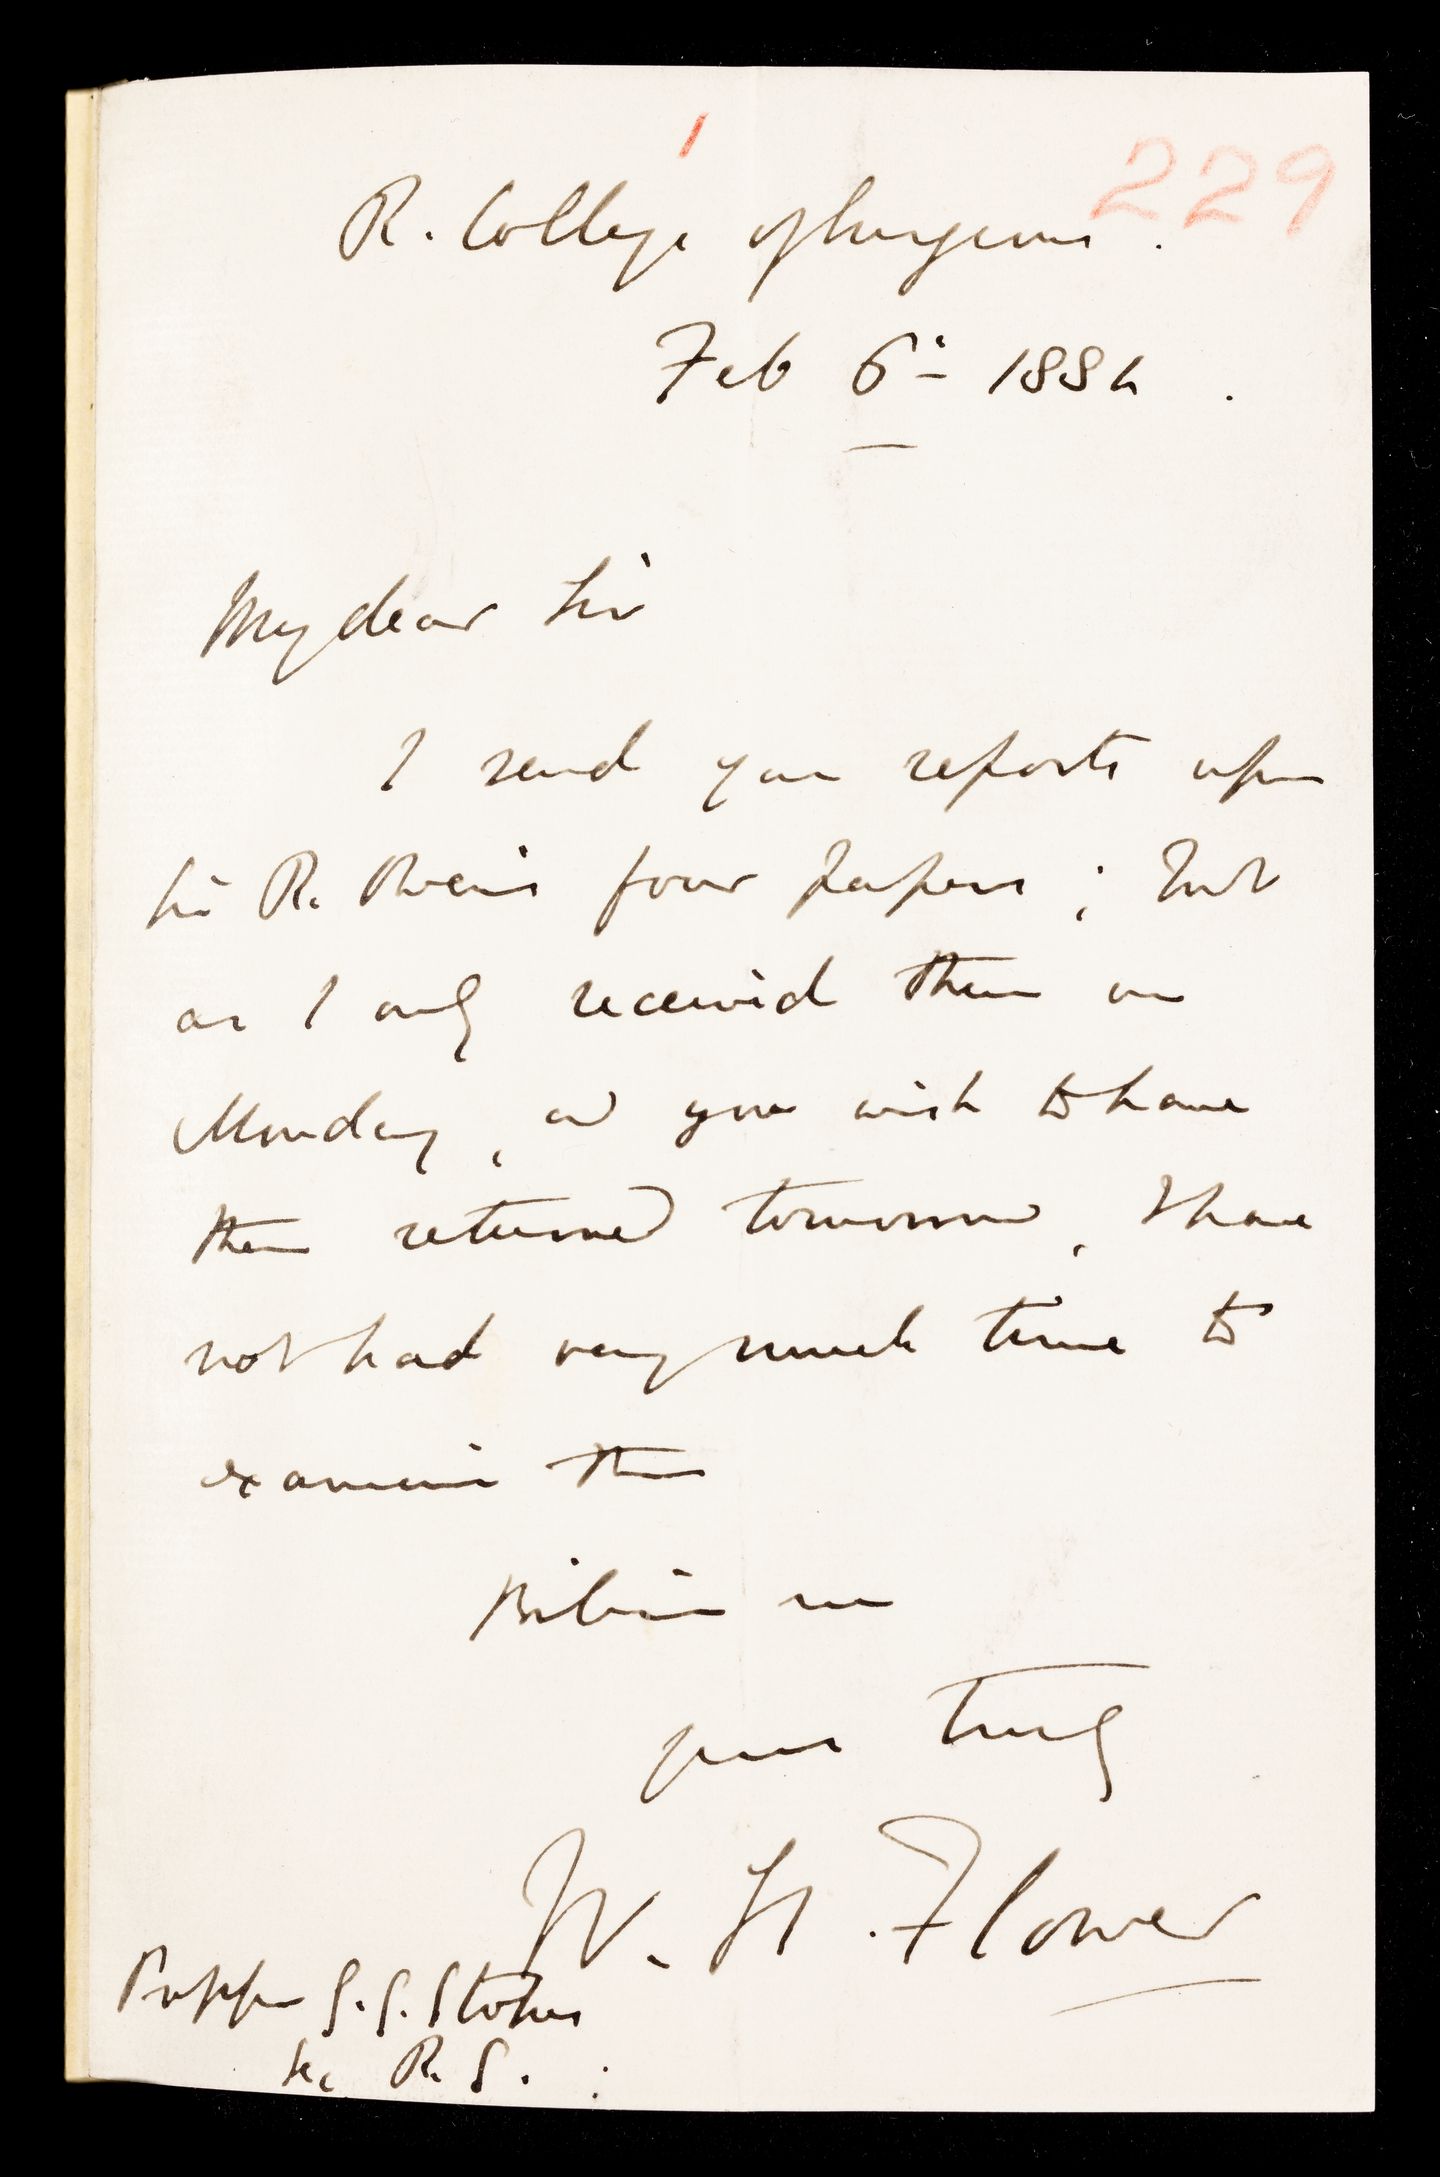 1
229
R. College of Surgeons.
Feb 6th 1884.
My dear Sir
I send you reports upon
Sir R. Owen's four papers; but
as I only received them on
Monday, and you wish to have
them returned tomorrow, I have
not had very much time to
examine them
Believe me
yours truly
W. H. Flower
Professor G. G. Stokes
Sec. R. S.